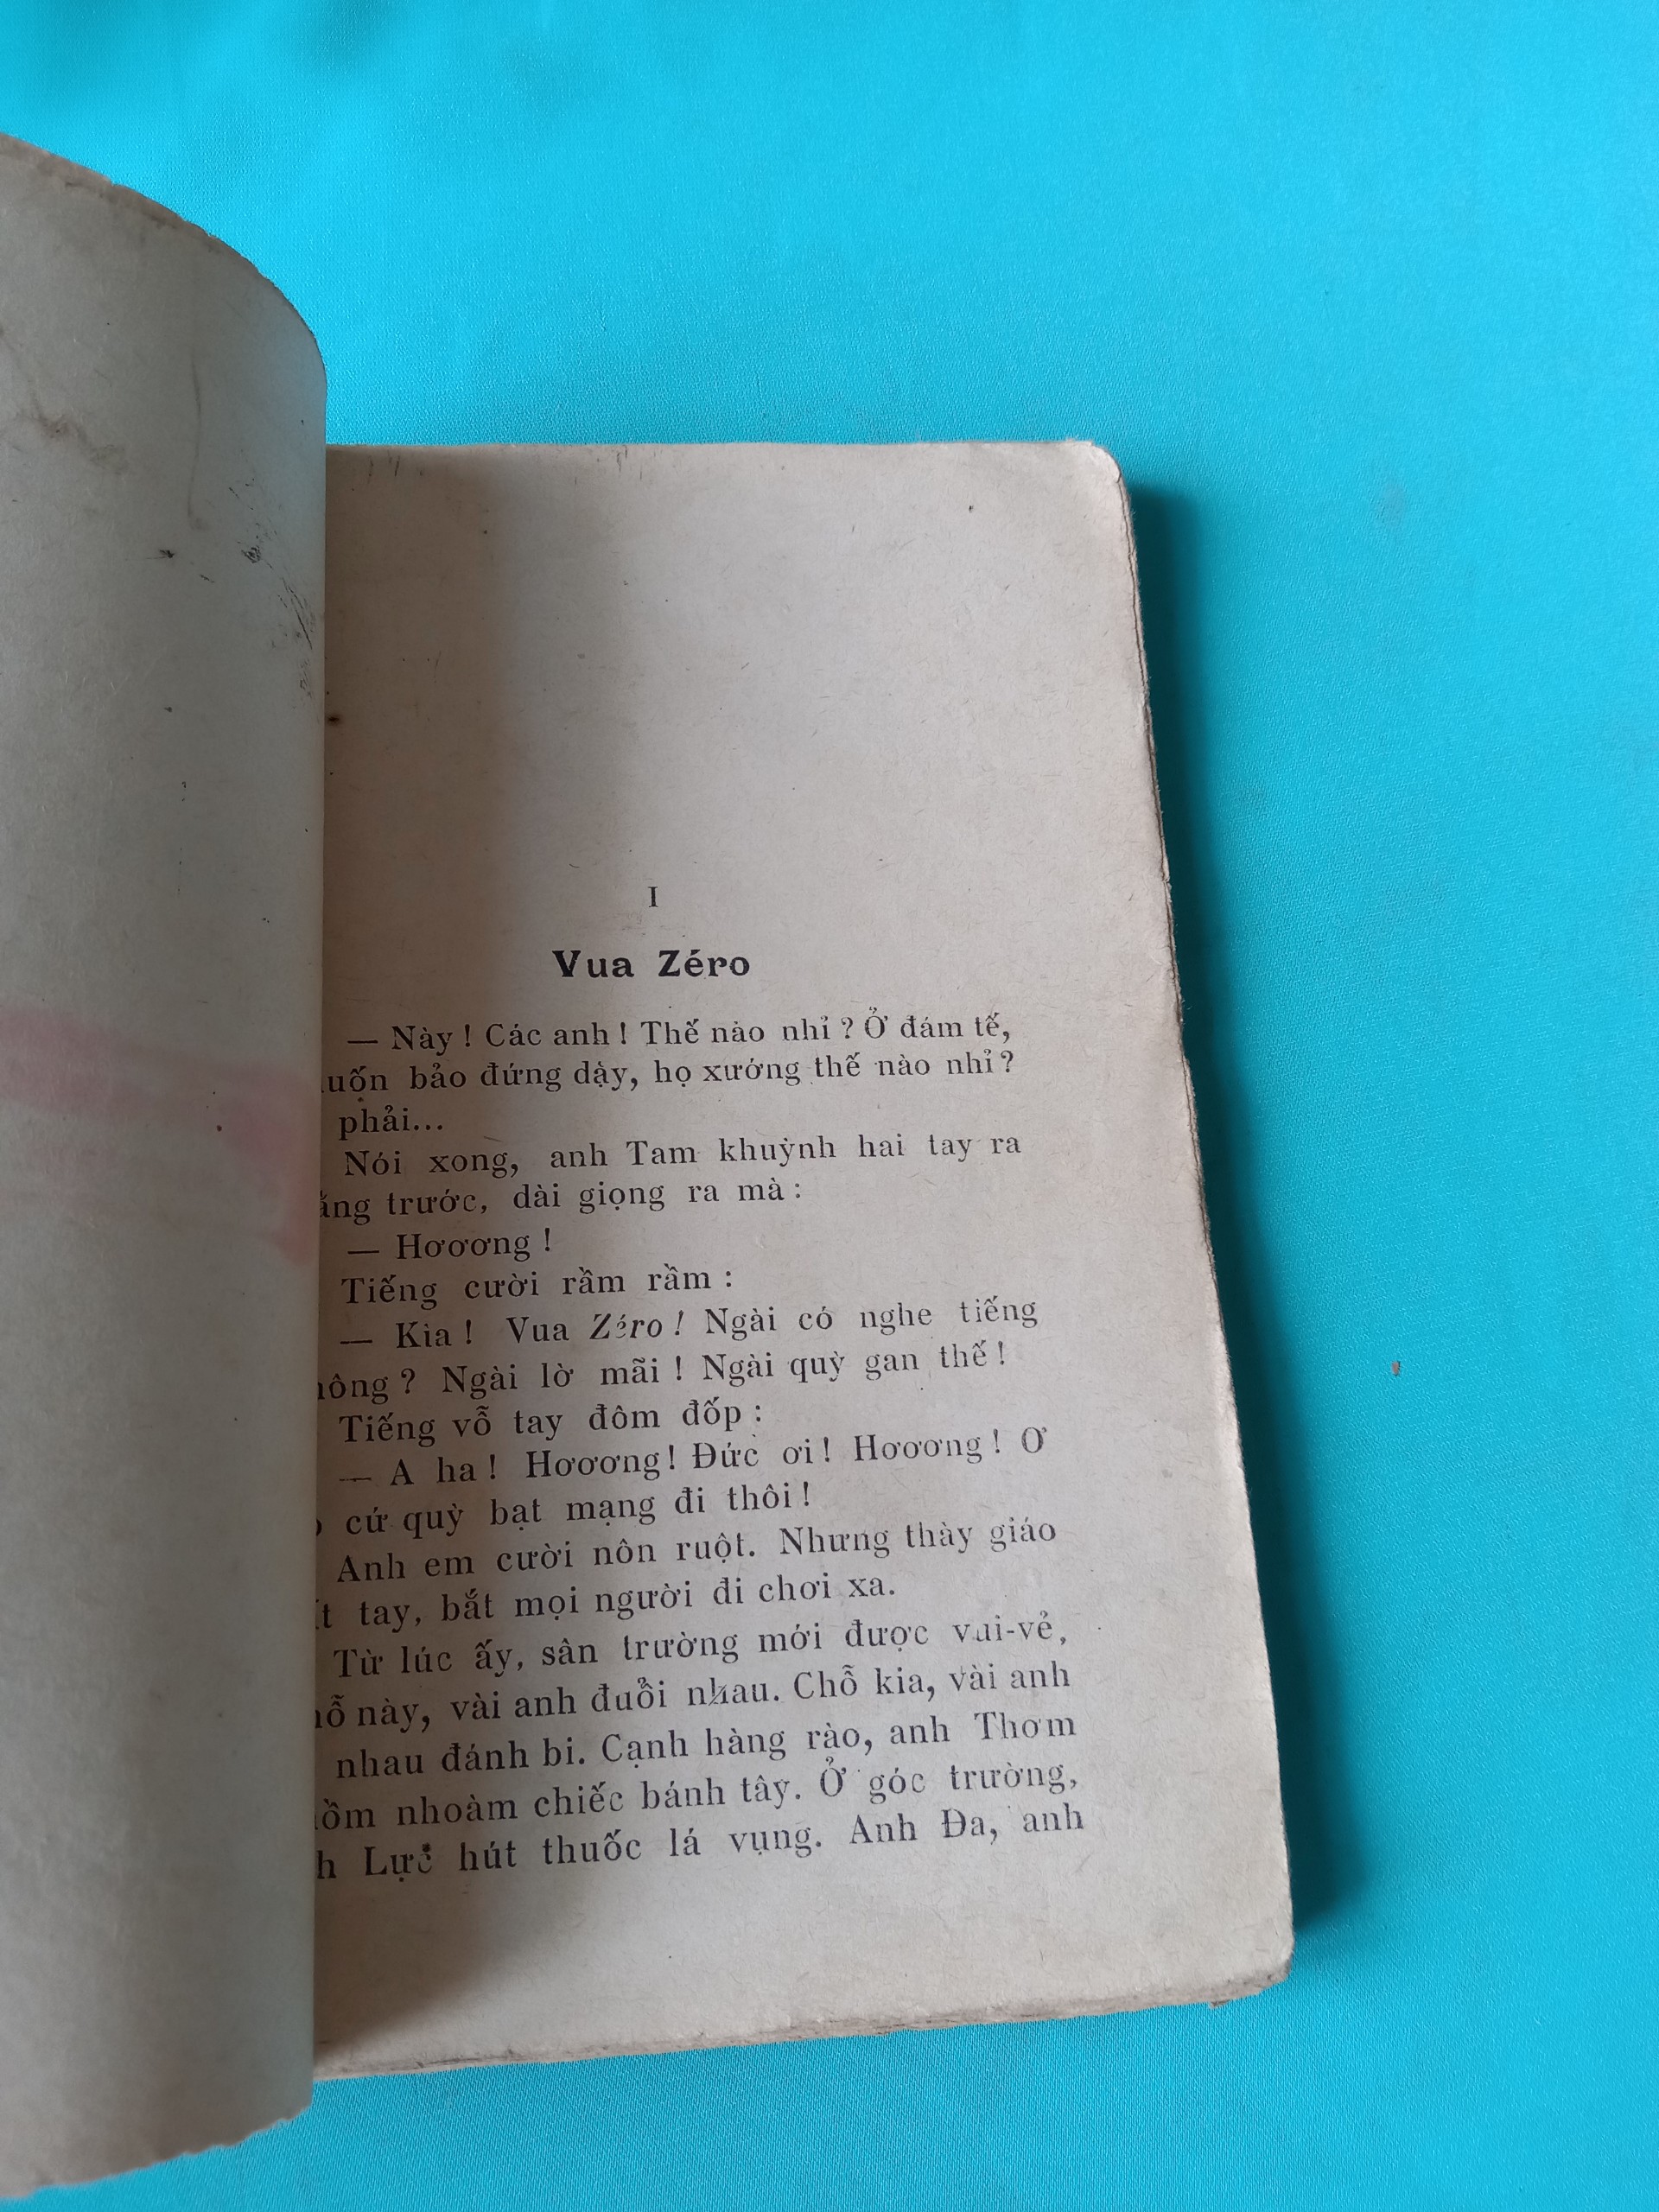 I
Vua Zéro
— Này ! Các anh ! Thế nào nhỉ ? Ở đám tế,
bảo đứng dậy, họ xướng thế nào nhỉ ?
phải...
Nói xong, anh Tam khuỳnh hai tay ra
trước, dài giọng ra mà :
— Hơơơng !
Tiếng cười rầm rầm :
— Kìa ! Vua Zéro ! Ngài có nghe tiếng
Ngài lờ mãi ! Ngài quỳ gan thế !
Tiếng vỗ tay đôm đốp :
— A ha ! Hơơơng ! Đức ơi ! Hơơơng ! Ơ
cứ quỳ bạt mạng đi thôi !
Anh em cười nôn ruột. Nhưng thày giáo
tay, bắt mọi người đi chơi xa.
Từ lúc ấy, sân trường mới được vui-vẻ,
này, vài anh đuổi nhau. Chỗ kia, vài anh
nhau đánh bi. Cạnh hàng rào, anh Thơm
nhoàm chiếc bánh tây. Ở góc trường,
Lực hút thuốc lá vụng. Anh Đa, anh